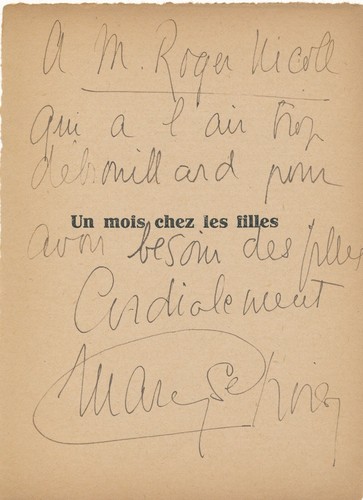 A M. Roger Nicoll
qui a l'air trop
débrouillard pour
Un mois chez les filles
avoir besoin des filles
Cordialement
Maryse Choisy